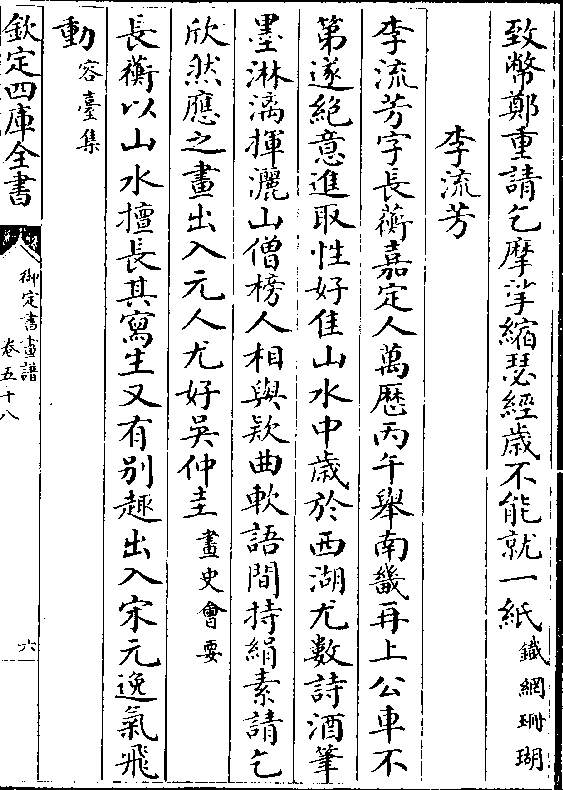 致幣鄭重請乞摩挲縮瑟經歳不能就一紙鐵網珊瑚
李流芳
李流芳字長蘅嘉定人萬厯丙午舉南畿再上公車不
第遂絶意進取性好佳山水中歳於西湖尤數詩酒筆
墨淋漓揮灑山僧榜人相與欵曲軟語間持絹素請乞
欣然應之畫出入元人尤好吳仲圭畫史會要
長蘅以山水擅長其寫生又有别趣出入宋元逸氣飛
動容臺集
欽定四庫全書
御定書畫譜
卷五十八
六